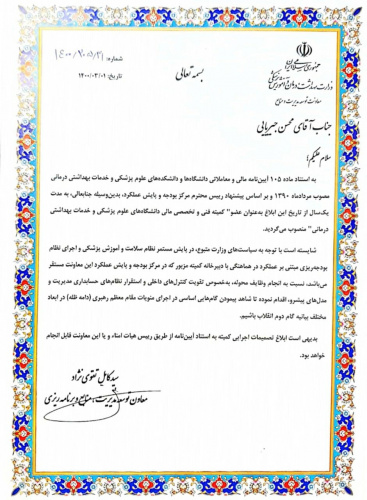 جمهوری اسلامی ایران
وزارت بهداشت، درمان و آموزش پزشکی
معاونت توسعه مدیریت و منابع
بسمه تعالی
شماره:
تاریخ: ۱۴۰۰/۰۳/۰۱
جناب آقای محسن جیریایی
سلام علیکم؛
به استناد ماده ۱۰۵ آیین‌نامه مالی و معاملاتی دانشگاه‌ها و دانشکده‌های علوم پزشکی و خدمات بهداشتی درمانی
مصوب مردادماه ۱۳۹۰ و بر اساس پیشنهاد رییس محترم مرکز بودجه و پایش عملکرد، بدین‌وسیله جنابعالی، به مدت
یک‌سال از تاریخ این ابلاغ به‌عنوان عضو" کمیته فنی و تخصصی مالی دانشگاه‌های علوم پزشکی و خدمات بهداشتی
درمانی" منصوب می‌گردید.
شایسته است با توجه به سیاست‌های وزارت متبوع، در پایش مستمر نظام سلامت و آموزش پزشکی و اجرای نظام
بودجه‌ریزی مبتنی بر عملکرد در هماهنگی با دبیرخانه کمیته مزبور که در مرکز بودجه و پایش عملکرد این معاونت مستقر
می‌باشد، نسبت به انجام وظایف محوله، به‌خصوص تقویت کنترل‌های داخلی و استقرار نظام‌های حسابداری مدیریت و
مدل‌های پیشرو، اقدام نموده تا شاهد پیمودن گام‌هایی اساسی در اجرای منویات مقام معظم رهبری (دامه ظله) در ابعاد
مختلف بیانیه گام دوم انقلاب باشیم.
بدیهی است ابلاغ تصمیمات اجرایی کمیته به استناد آیین‌نامه از طریق رییس هیات امناء و یا این معاونت قابل انجام
خواهد بود.
سید کامل تقوی نژاد
معاون توسعه مدیریت، منابع و برنامه ریزی